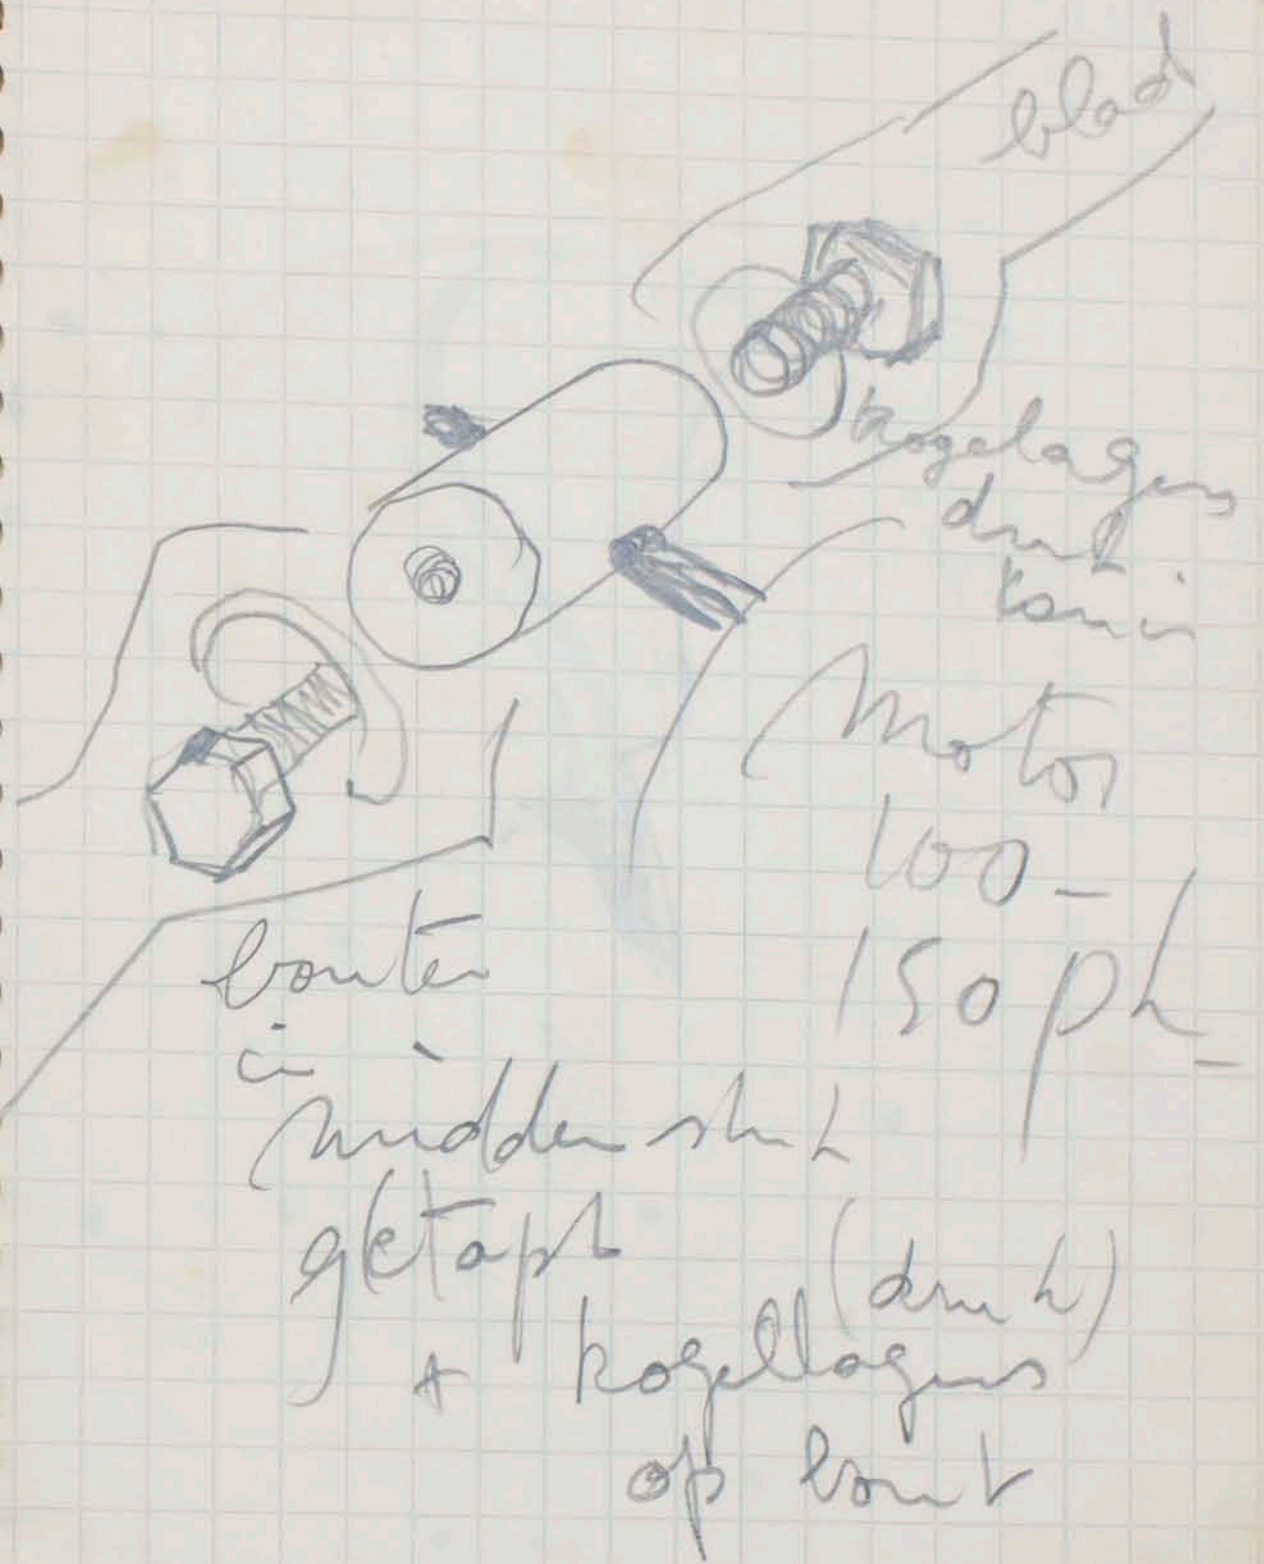 blad
kogelagers
druk
Motor
100 -
150 ph -
bouten
in
midden stuk
getapt
(druk)
+ kogellagers
op bout